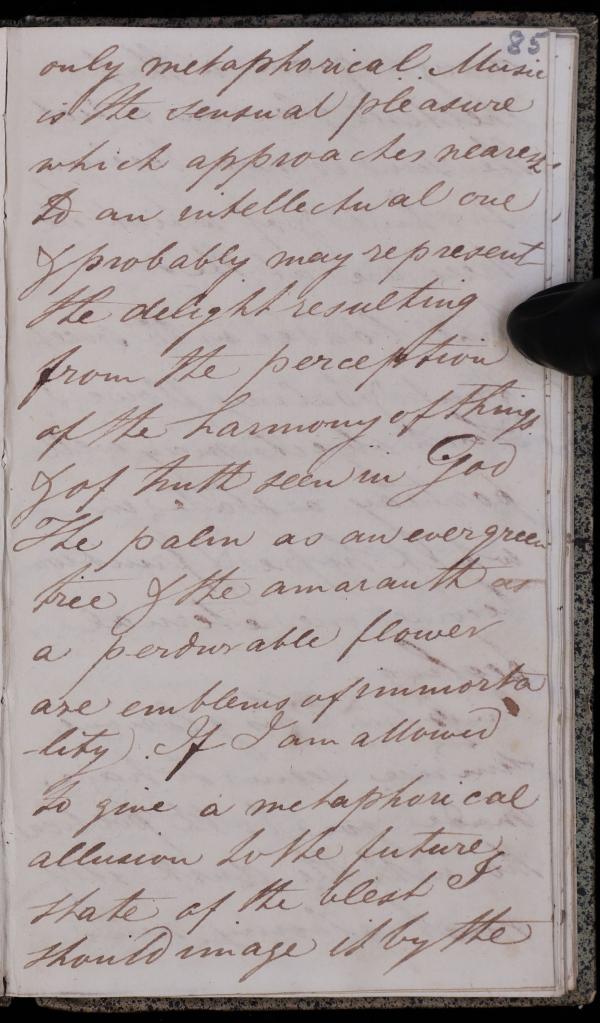 85
only metaphorical. Music
is the sensual pleasure
which approaches nearest
to an intellectual one
& probably may represent
the delight resulting
from the perception
of the harmony of things
& of truth seen in God
The palm as an evergreen
tree & the amaranth as
a perdurable flower
are emblems of immorta
-lity). If I am allowed
to give a metaphorical
allusion to the future
state of the blest I
should image it by the